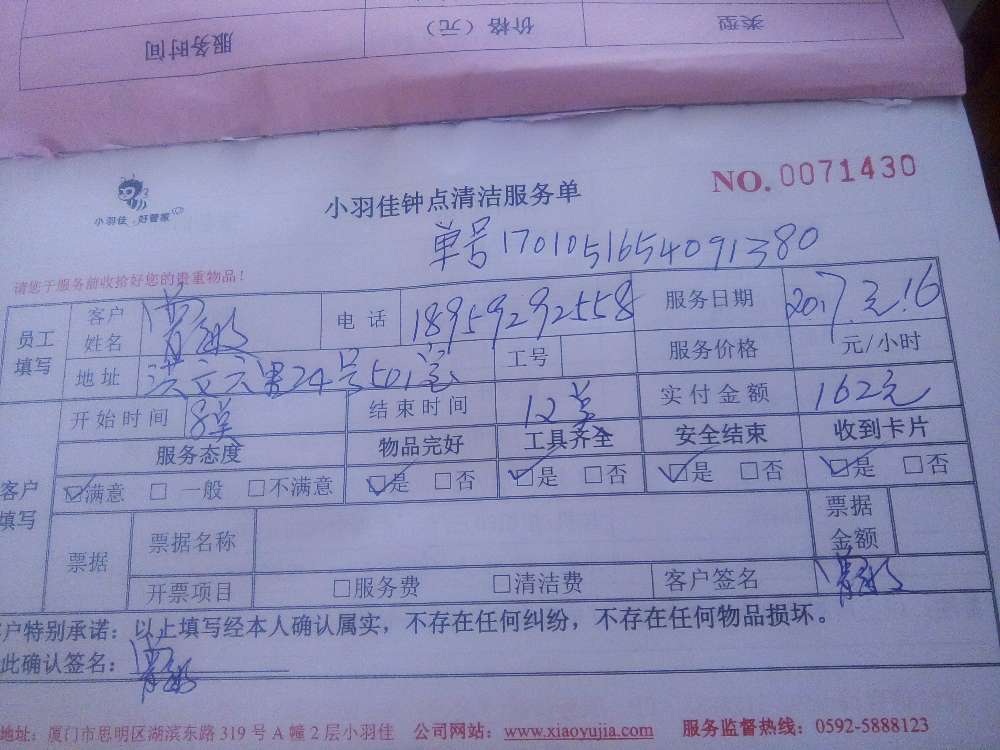 类型 价格（元） 服务时间
小羽佳·好管家
小羽佳钟点清洁服务单
NO.0071430
单号1701051654091380
请您于服务前收拾好您的贵重物品！
员工填写 客户姓名 电话 18959292558 服务日期 2017.元.16
地址 洪文六里24号501室 工号 服务价格 元/小时
开始时间 8点 结束时间 12点 实付金额 162元
服务态度 物品完好 工具齐全 安全结束 收到卡片
客户填写 ☑满意 □一般 □不满意 ☑是 □否 ☑是 □否 ☑是 □否 ☑是 □否
票据 票据名称 票据金额
开票项目 □服务费 □清洁费 客户签名
户特别承诺：以上填写经本人确认属实，不存在任何纠纷，不存在任何物品损坏。
此确认签名：
地址：厦门市思明区湖滨东路319号A幢2层小羽佳 公司网站：www.xiaoyujia.com 服务监督热线：0592-5888123